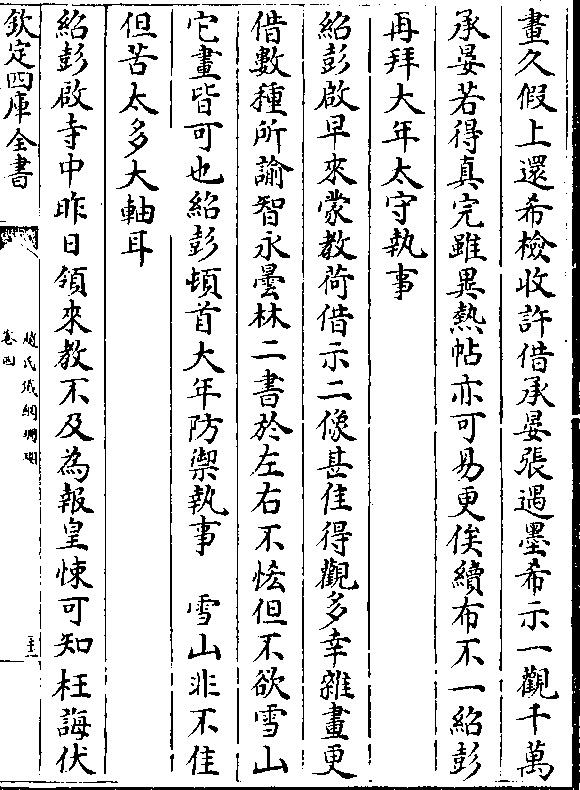 畫久假上還希檢收許借承晏張遇墨希示一觀千萬
承晏若得真完雖異熱帖亦可易更俟續布不一紹彭
再拜大年太守執事
紹彭啟早來蒙教荷借示二像甚佳得觀多幸雜畫更
借數種所諭智永曇林二書於左右不惜但不欲雪山
它畫皆可也紹彭頓首大年防禦執事　雪山非不佳
但苦太多大軸耳
紹彭啟寺中昨日領來教不及為報皇悚可知枉誨伏
欽定四庫全書
趙氏鐵網珊瑚
卷四